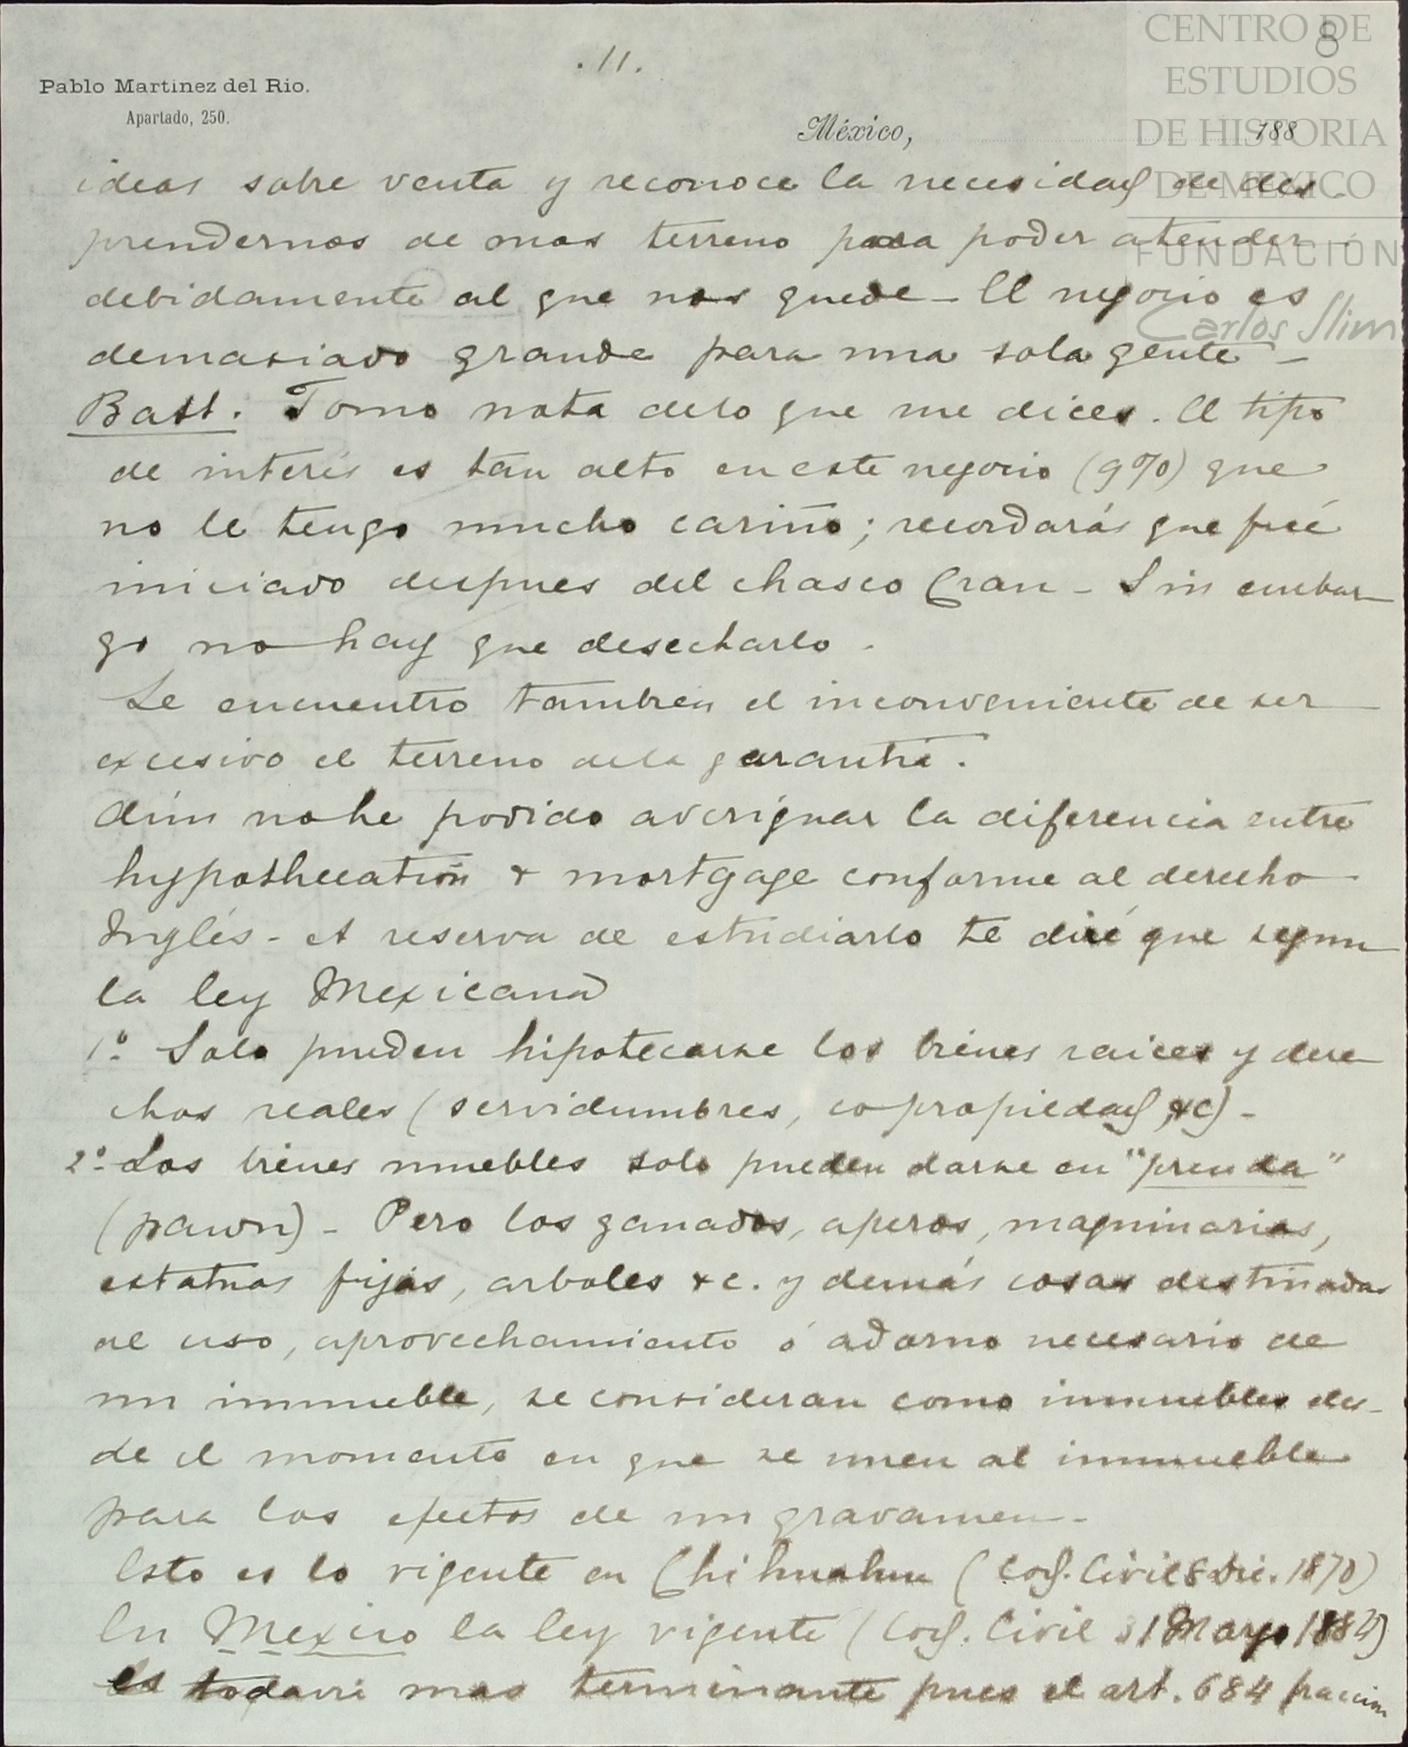 8
.11.
Pablo Martinez del Rio.
Apartado, 250.
México, 188
CENTRO DE
ESTUDIOS
DE HISTORIA
DE MÉXICO
FUNDACIÓN
Carlos Slim
ideas sobre venta y reconoce la necesidad de des-
prendernos de mas terreno para poder atender
debidamente al que nos quede - El negocio es
demasiado grande para una sola gente -
Batt. Tomo nota de lo que me dices. El tipo
de interés es tan alto en este negocio (9%) que
no le tengo mucho cariño; recordarás que fué
iniciado despues del chasco Cran - Sin embar
go no hay que desecharlo.
Le encuentro tambien el inconveniente de ser
excesivo el terreno de la garantía.
Aún no he podido averiguar la diferencia entre
hypothecation & mortgage conforme al derecho
Inglés - A reserva de estudiarlo te diré que segun
la ley Mexicana
1º Solo pueden hipotecarse los bienes raices y dere
chos reales (servidumbres, copropiedad, &c) -
2º Los bienes muebles solo pueden darse en "prenda"
(pawn) - Pero los ganados, aperos, maquinarias,
estatuas fijas, arboles &c. y demás cosas destinadas
al uso, aprovechamiento ó adorno necesario de
un inmueble, se consideran como inmuebles des-
de el momento en que se unen al inmueble
para los efectos de un gravamen -
Esto es lo vigente en Chihuahua (Cod. Civil 8 Dic. 1870)
En Mexico la ley vigente (Cod. Civil 31 Mayo 1884)
es todavi mas terminante pues el art. 684 fraccion